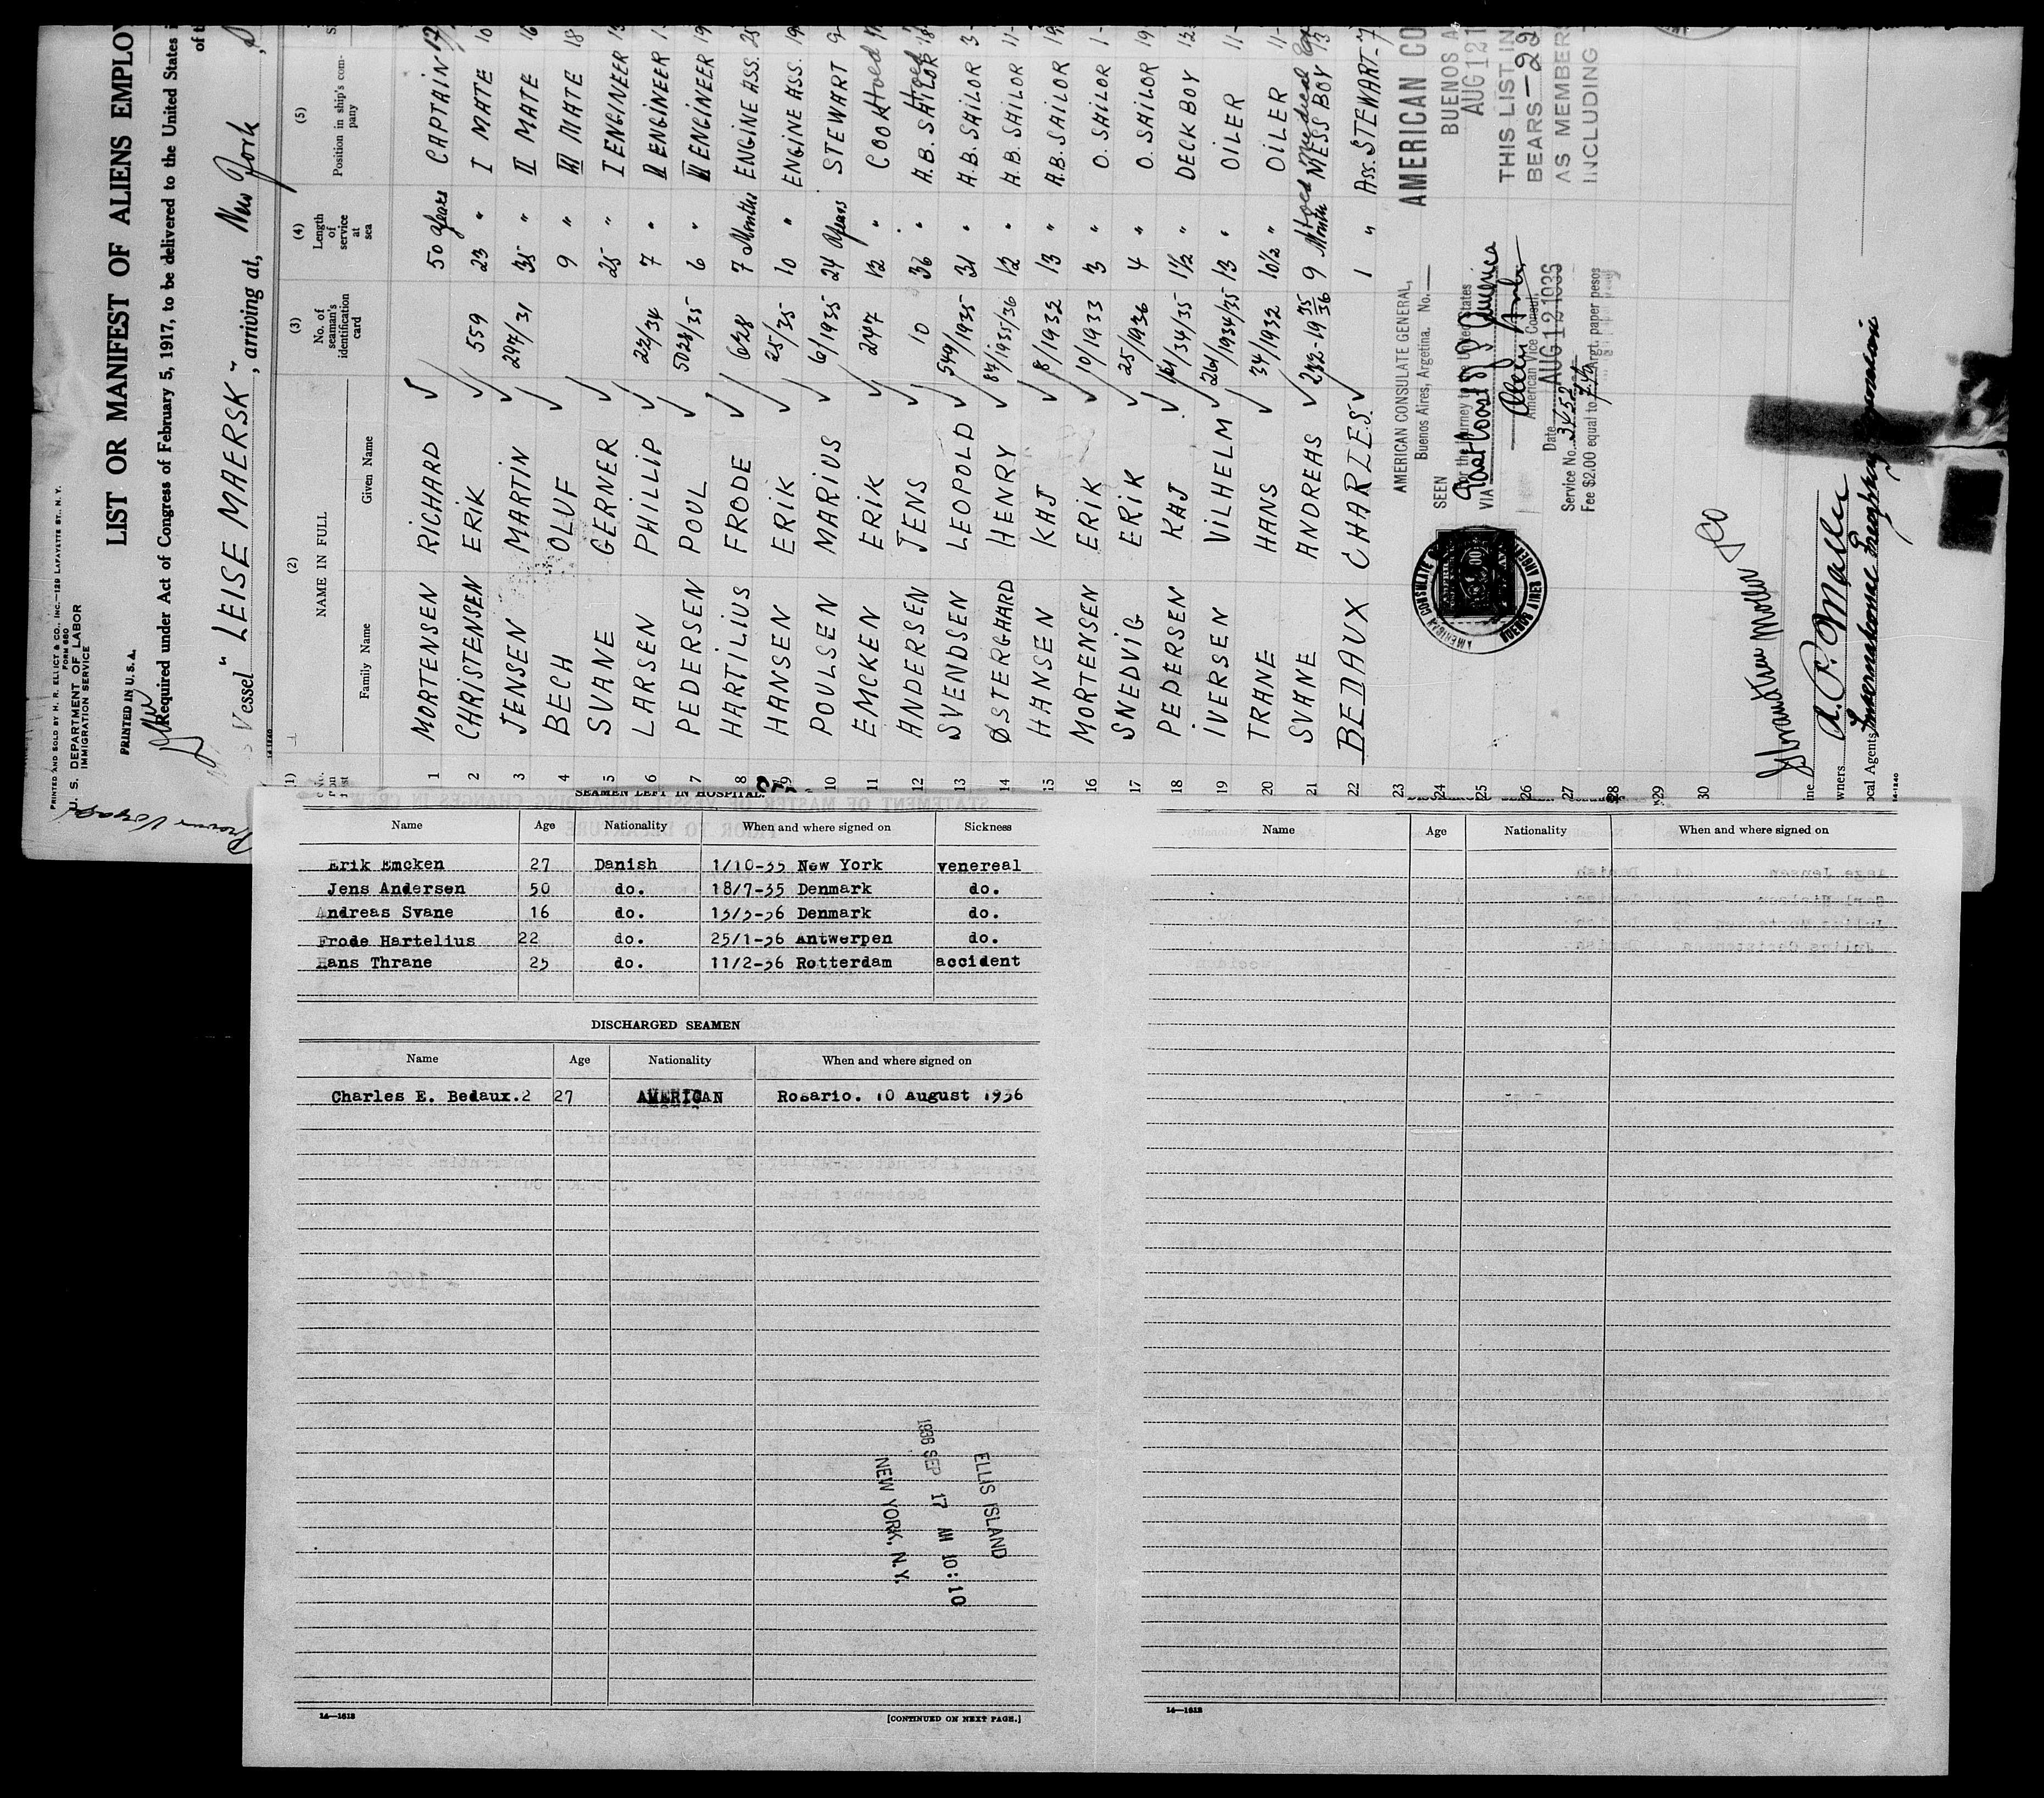 PRINTED AND SOLD BY H. R. ELLIOT & CO., INC.—129 LAFAYETTE ST., N. Y.
FORM 680
U. S. DEPARTMENT OF LABOR
IMMIGRATION SERVICE
PRINTED IN U. S. A.
LIST OR MANIFEST OF ALIENS EMPLOY
Required under Act of Congress of February 5, 1917, to be delivered to the United States i
of th
Vessel "LEISE MAERSK", arriving at, New York
(1) (2) (3) (4) (5)
NAME IN FULL
Family Name Given Name No. of seaman's identification card Length of service at sea Position in ship's company
1 MORTENSEN RICHARD 50 years CAPTAIN 17
2 CHRISTENSEN ERIK 559 23 " I MATE 10
3 JENSEN MARTIN 297/31 35 " II MATE 16
4 BECH OLUF 9 " III MATE 18
5 SVANE GERNER 25 " I ENGINEER 13
6 LARSEN PHILLIP 22/34 7 " II ENGINEER 1-
7 PEDERSEN POUL 5028/35 6 " III ENGINEER 19
8 HARTILIUS FRODE 628 7 Months ENGINE ASS. 25
9 HANSEN ERIK 25/35 10 " ENGINE ASS. 19
10 POULSEN MARIUS 6/1935 24 years STEWART 9-
11 EMCKEN ERIK 247 12 " COOK
12 ANDERSEN JENS 10 36 " A.B. SAILOR 18
13 SVENDSEN LEOPOLD 549/1935 31 " A.B. SAILOR 3-
14 ØSTERGAARD HENRY 84/1935/36 12 " A.B. SAILOR 11-
15 HANSEN KAJ 8/1932 13 " A.B. SAILOR 19
16 MORTENSEN ERIK 10/1933 3 " O. SAILOR 1-
17 SNEDVIG ERIK 25/1936 4 " O. SAILOR 19
18 PEDERSEN KAJ 34/35 1½ " DECK BOY 12
19 IVERSEN VILHELM 261/1934/35 13 " OILER 11-
20 TRANE HANS 34/1932 10½ " OILER 11-
21 SVANE ANDREAS 232-1935/36 9 Month MESS BOY 13
22 BEDAUX CHARLES 1 " Ass. STEWART 7
23
24
25
26
27
28
29
30
AMERICAN CONSULATE GENERAL,
Buenos Aires, Argetina. No.
SEEN
For the journey to the United States
VIA East Coast S America
American Vice Consul
Date AUG 12 1936
Service No. 3452
Fee $2.00 equal to Argt. paper pesos
AMERICAN CONSULATE
BUENOS AIRES ARGENTI
AMERICAN CO
BUENOS A
AUG 121
THIS LIST IN
BEARS—22
AS MEMBERS
INCLUDING
A. P. Moller
Owners
Local Agents
14-1240
SEAMEN LEFT IN HOSPITAL.
Name Age Nationality When and where signed on Sickness
Erik Emcken 27 Danish 1/10-35 New York venereal
Jens Andersen 50 do. 18/7-35 Denmark do.
Andreas Svane 16 do. 13/3-36 Denmark do.
Frode Hartelius 22 do. 25/1-36 Antwerpen do.
Hans Thrane 25 do. 11/2-36 Rotterdam accident
DISCHARGED SEAMEN
Name Age Nationality When and where signed on
Charles E. Bedaux.2 27 AMERICAN Rosario. 10 August 1936
ELLIS ISLAND
1936 SEP 17 AM 10:10
NEW YORK, N.Y.
14—1613
[CONTINUED ON NEXT PAGE.]
Name Age Nationality When and where signed on
14—1613